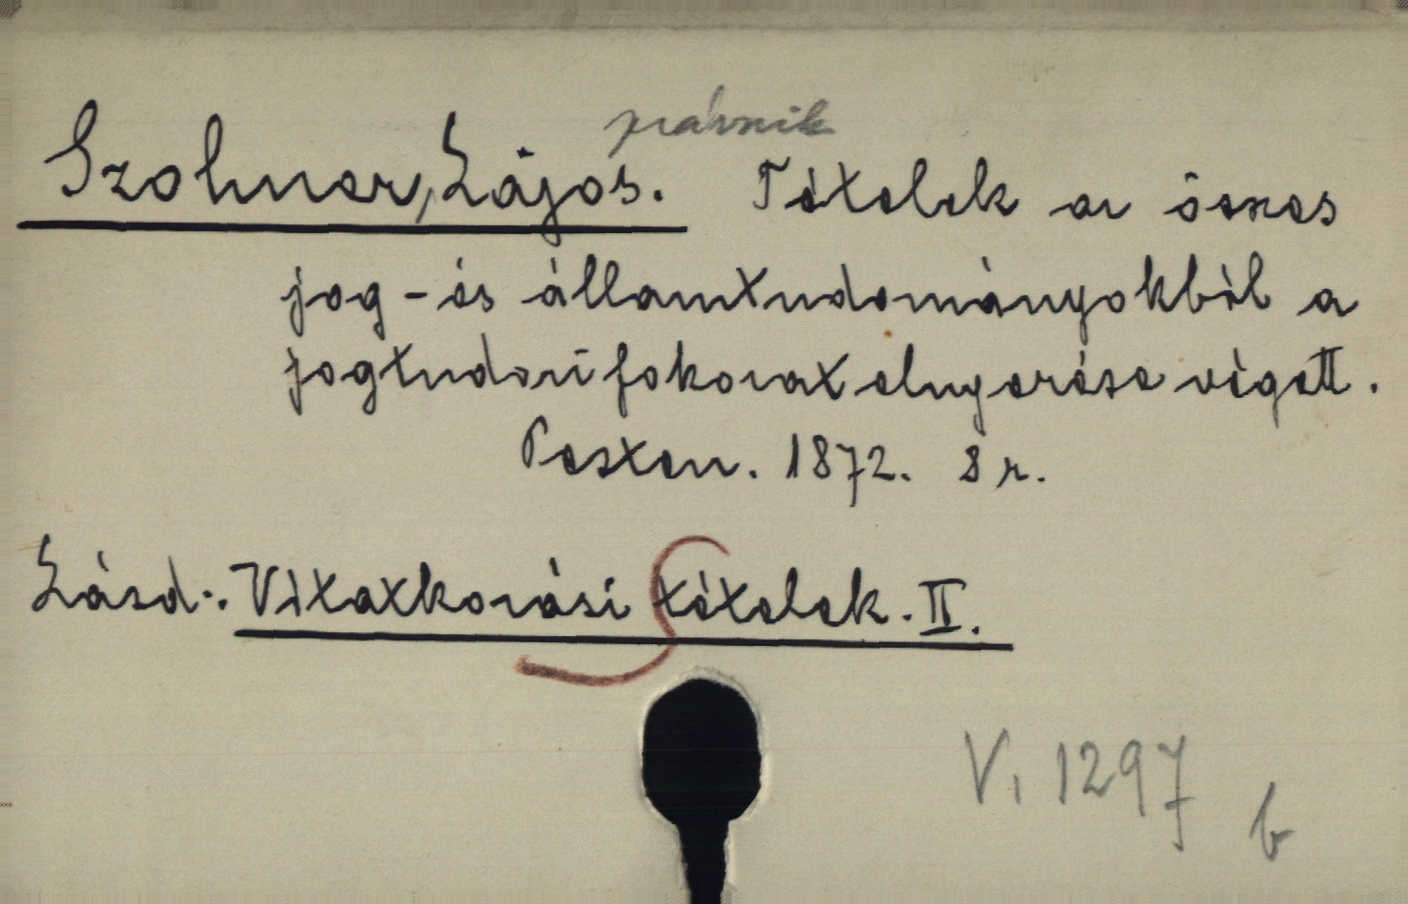 právnik
Szohner, Lajos. Tételek az össes
jog-és államtudományokból a
jogtudori fokozat elnyerése végett.
Pesten. 1872. 8 r.
Lásd.: Vitatkozási tételek. II.
V, 1297
b